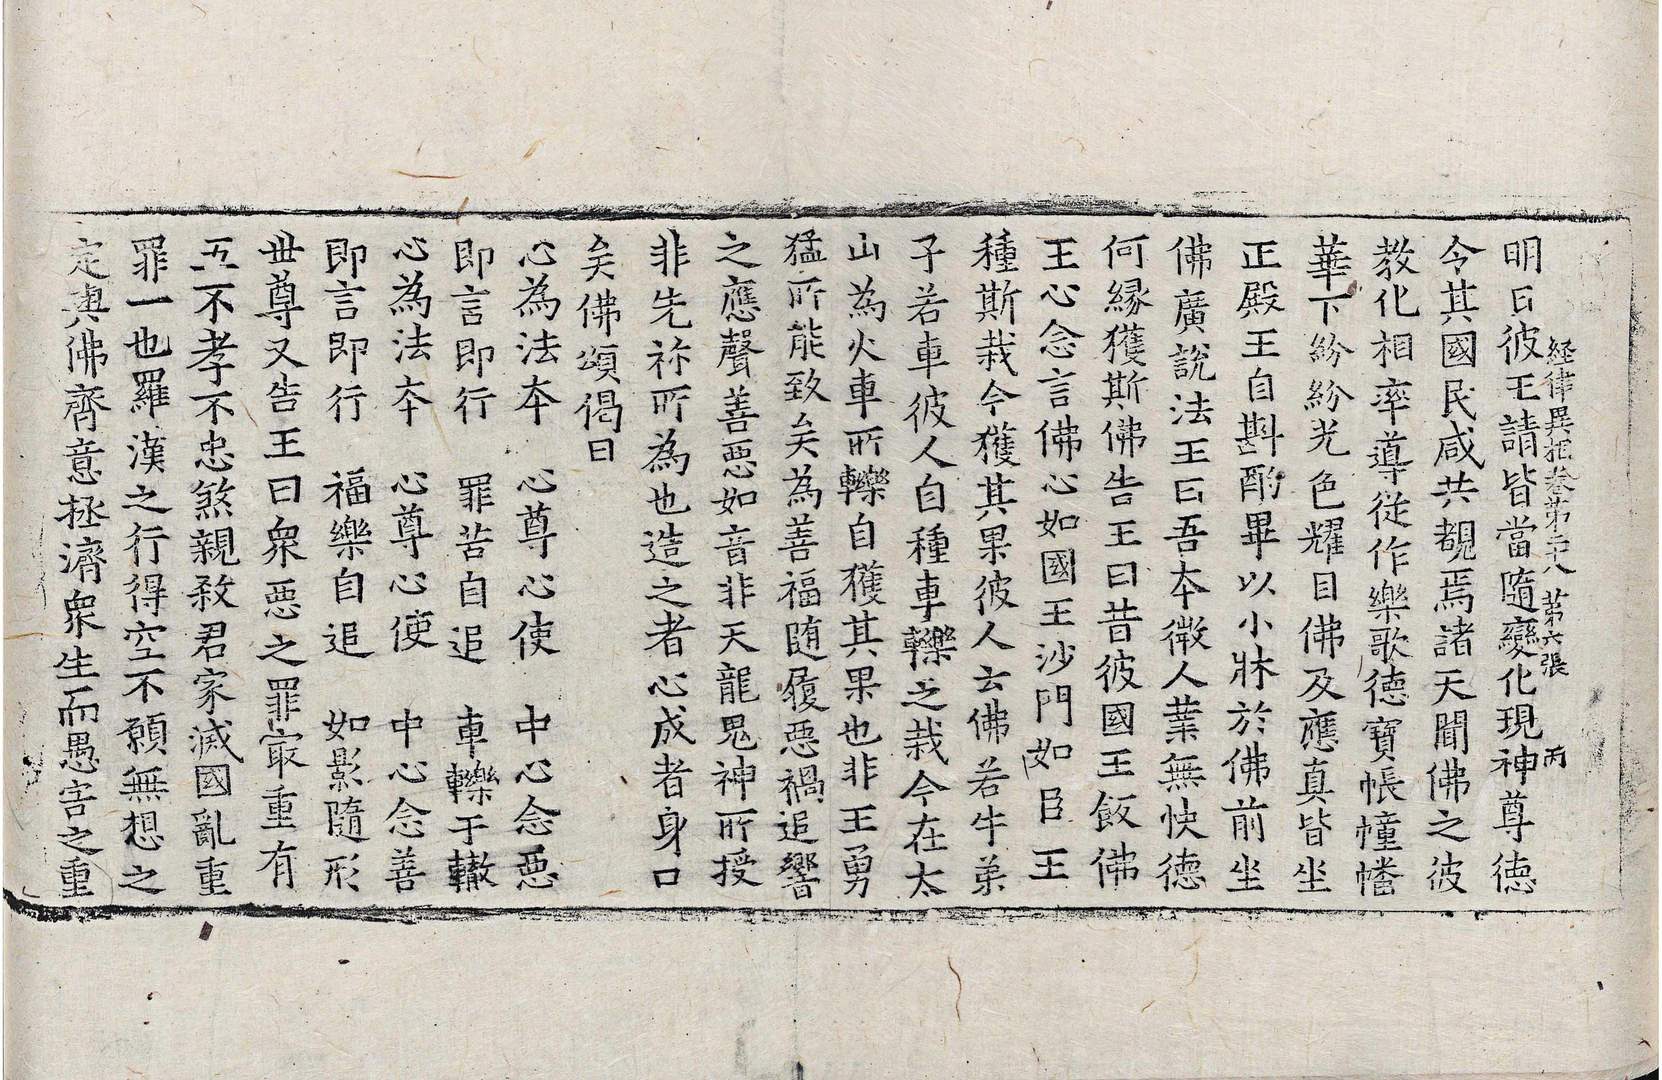 経律異相卷第二十八 第六張 丙
明日彼王請皆當隨變化現神尊德
令其國民咸共覩焉諸天聞佛之彼
教化相率導從作樂歌德寶帳幢幡
華下紛紛光色耀目佛及應真皆坐
正殿王自斟酌畢以小牀於佛前坐
佛廣說法王曰吾本微人葉無快德
何緣獲斯佛告王曰昔彼國王飯佛
王心念言佛心如國王沙門如臣王
種斯栽今獲其果彼人云佛若牛弟
子若車彼人自種車轢之栽今在太
山為火車所轢自獲其果也非王勇
猛所能致矣為善福随履惡禍追響
之應聲善惡如音非天龍鬼神所授
非先祢所為也造之者心成者身口
矣佛頌偈曰
心為法本 心尊心使 中心念惡
即言即行 罪苦自追 車轢于轍
心為法本 心尊心使 中心念善
即言即行 福樂自追 如影隨形
世尊又告王曰衆惡之罪㝡重有
五不孝不忠煞親敎君家滅國亂重
罪一也羅漢之行得空不願無想之
定與佛齊意拯濟衆生而愚害之重